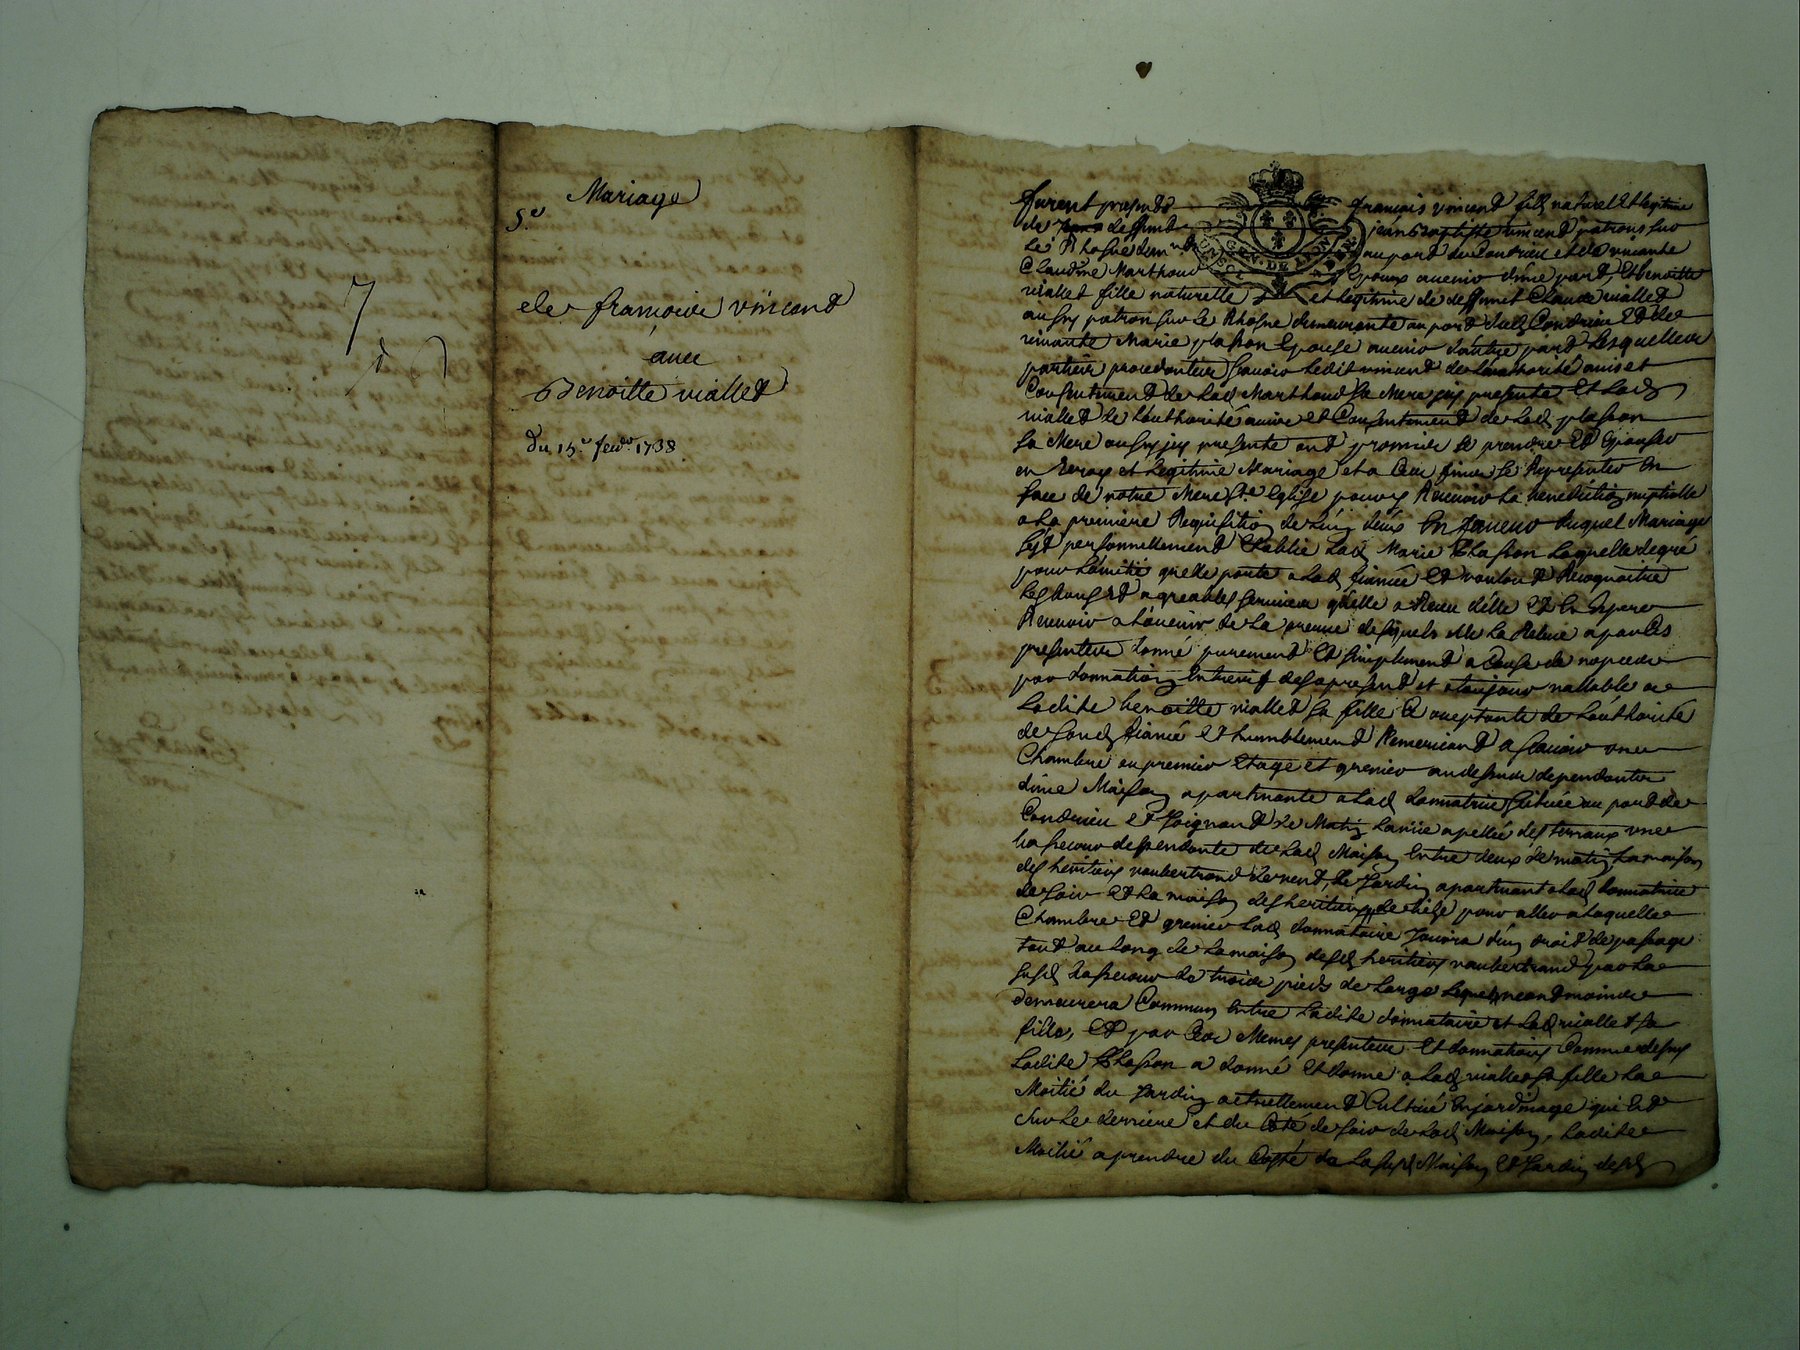 Mariage
S.r
de francois vincent
avec
Benoitte viallet
du 15.e fevr. 1738
7
furent presents francois vincent fils naturel et legitime
de deffunt jean baptiste vincent patron sur
le Rhosne dem.nt au port de Condrieu et de vivante
Claudine Marthoud Epoux avenir d'une part, Et benoitte
viallet fille naturelle et legitime de deffunt Claude viallet
aussy patron sur le Rhosne demeurante au port dud. Condrieu Et de
vivante Marie plasson Epouse avenir d'autre part Lesquelles
parties procedantes scavoir Ledit vincent de l'authorité avis et
Consentement de lad. Marthoud sa Mere icy presente Et lad.
viallet de l'authorité avis et Consentement de lad. plasson
sa Mere aussy icy presente ont promis se prendre Et Epouser
en vray et Legitime Mariage et a ces fins se Representer En
face de notre Mere S.te Eglise pour y Recevoir la benediction nuptialle
a la premiere Requisition de l'un d'eux En faveur duquel Mariage
s'est personnellement Etablie lad. Marie Plasson Laquelle de gré
pour l'amitié quelle porte a lad. fiancée Et voulant Recognoitre
les bons et agreables services qu'elle a Receu d'elle Et En Espere
Recevoir a l'avenir de la preuve desquels elle la Releve a par Ces
presentes donné purement Et simplement a Cause de nopces
par donnation Entrevifs des apresent et toujours vallable a
Ladite benoitte viallet sa fille acceptante de l'authorité
de sond. fiancé Et humblement Remerciant a scavoir une
Chambre au premier Etage et grenier au dessus dependants
d'une Maison apartenante a lad. donnatrice scituée au port de
Condrieu Et joignant de Matin la rue apellée des terraux une
basse cour dependante de lad. Maison Entre deux de matin la maison
des heritiers vaubertrand de vent, Le jardin apartenant a lad. donnatrice
de soir Et la maison des heritiers de bize pour aller a laquelle
Chambre Et grenier lad. donnataire jouira d'un droit de passage
tout au long de la maison desd. heritiers vaubertrand par la
susd. basse cour de trois pieds de large Lequel neantmoins
demeurera Commun Entre Ladite donnataire et lad. viallet sa
fille, Et par Ces Memes presentes Et donnations Comme dessus
Ladite Plasson a donné Et donne a lad. viallet sa fille la
Moitié du jardin actuellement Cultivé En jardinage qui Est
sur le derriere et du Coté de soir de lad. Maison, ladite
Moitié a prendre du Costé de la susd. Maison Et jardin desd.